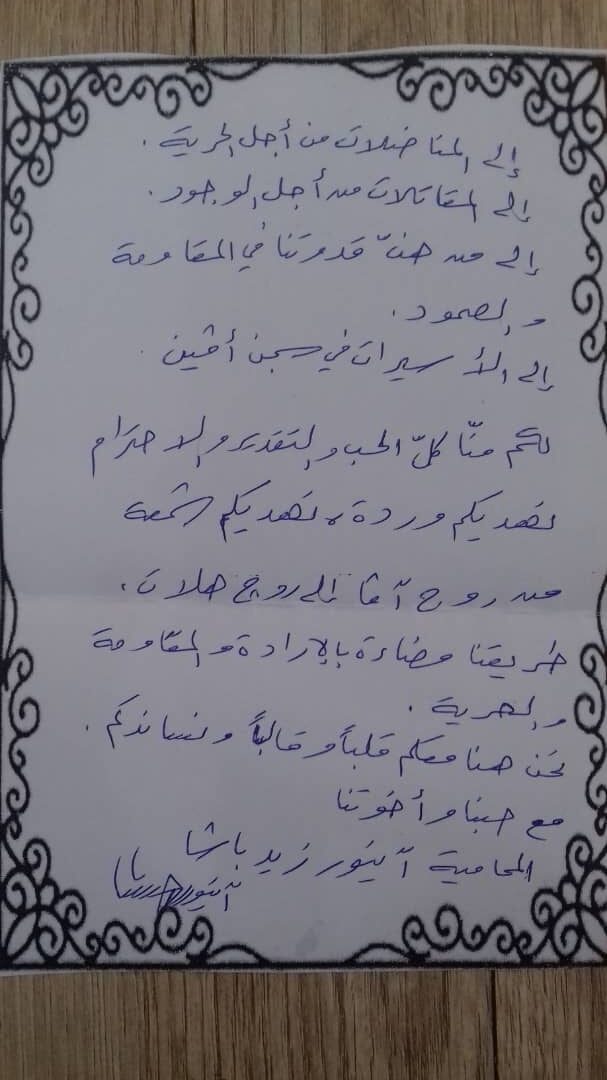 إلى المناضلات من أجل الحرية.
إلى المقاتلات من أجل الوجود.
إلى من هنّ قدوتنا في المقاومة
والصمود.
إلى الأسيرات في سجن أڤين.
لكم منّا كلّ الحب والتقدير والاحترام
نهديكم وردة، نهديكم شمعة
من روح آڤا إلى روج هلات.
طريقنا مضاءة بالإرادة والمقاومة
والحرية.
نحن هنا معكم قلباً وقالباً ونساندكم.
مع حبنا وأخوتنا
المحامية آينور زيد باشا
آينور باشا